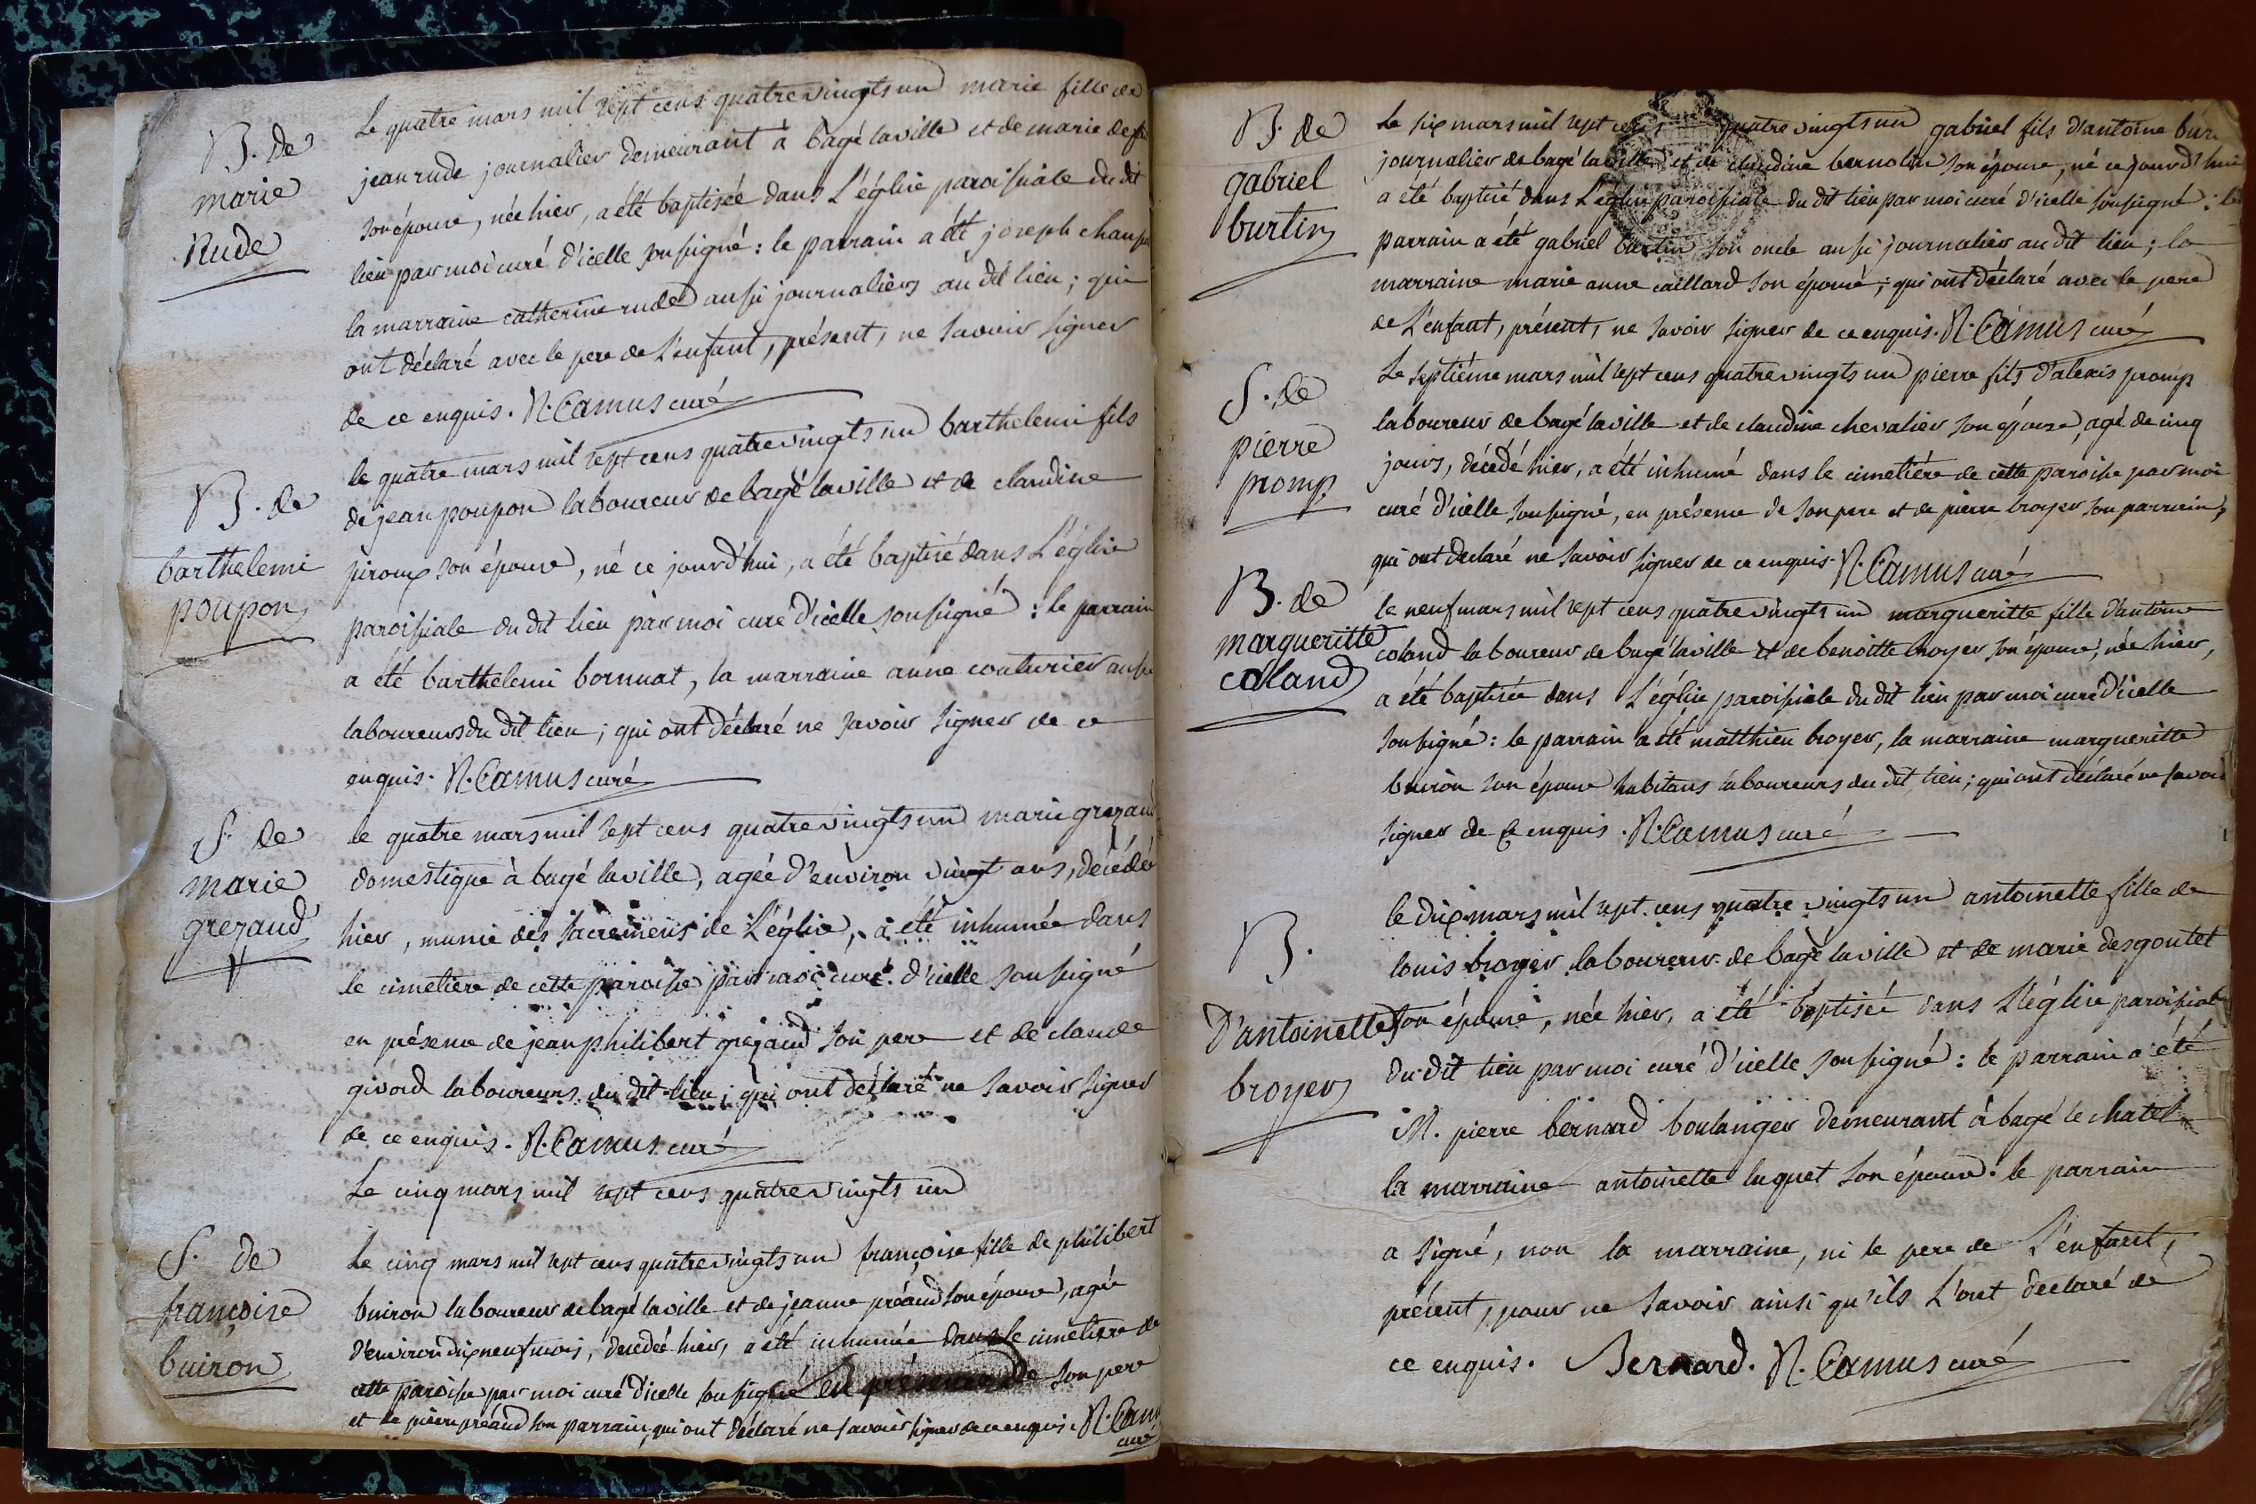 B. de
marie
Rude
Le quatre mars mil sept cens quatre vingts un marie fille de
jean rude journalier demeurant à bagé la ville et de marie
son épouse, née hier, a été baptisée dans L'église paroissiale du dit
lieu par moi curé d'icelle soussigné : le parrain a été joseph
la marraine catherine rude aussi journaliers au dit lieu ; qui
ont déclaré avec le pere de L'enfant, présent, ne savoir signer
de ce enquis. N. Camus curé
B. de
barthelemi
poupon
le quatre mars mil sept cens quatre vingts un barthelemi fils
de jean poupon laboureur de bagé la ville et de claudine
piroux son épouse, né ce jourd'hui, a été baptisé dans L'église
paroissiale du dit lieu par moi curé d'icelle soussigné : le parrain
a été barthelemi bornuat, la marraine anne couturier aussi
laboureurs du dit lieu ; qui ont déclaré ne savoir signer de ce
enquis. N. Camus curé
S. de
marie
grezaud
le quatre mars mil sept cens quatre vingts un marie grezaud
domestique à bagé la ville, agée d'environ vingt ans, décédée
hier, munie des sacremens de L'église, a été inhumée dans
le cimetiere de cette paroisse par moi curé d'icelle soussigné
en présence de jean philibert grezaud son pere et de claude
givord laboureurs du dit lieu ; qui ont déclaré ne savoir signer
de ce enquis. N. Camus curé
Le cinq mars mil sept cens quatre vingts un
S. de
francoise
buiron
Le cinq mars mil sept cens quatre vingts un françoise fille de philibert
buiron laboureur de bagé la ville et de jeanne préaud son épouse, agée
d'environ dix neuf mois, décédée hier, a été inhumée dans le cimetiere de
cette paroisse par moi curé d'icelle soussigné en présence de son pere
et de pierre préaud son parrain, qui ont déclaré ne savoir signer de ce enquis. N. Camus
curé
B. de
gabriel
burtin
Le six mars mil sept cens quatre vingts un gabriel fils d'antoine
journalier de bagé la ville et de claudine bernolin son épouse, né ce jourd'hui
a été baptisé dans L'église paroissiale du dit lieu par moi curé d'icelle soussigné : le
parrain a été gabriel burtin son oncle aussi journalier au dit lieu ; la
marraine marie anne caillard son épouse ; qui ont déclaré avec le pere
de L'enfant, présent, ne savoir signer de ce enquis. N. Camus curé
S. de
pierre
promp
Le septiéme mars mil sept cens quatre vingts un pierre fils d'alexis promp
laboureur de bagé la ville et de claudine chevalier son épouse, agé de cinq
jours, décédé hier, a été inhumé dans le cimetière de cette paroisse par moi
curé d'icelle soussigné, en présence de son pere et de pierre broyer son parrain,
qui ont declaré ne savoir signer de ce enquis. N. Camus curé
B. de
margueritte
coland
le neuf mars mil sept cens quatre vingts un margueritte fille d'antoine
coland laboureur de bagé la ville et de benoitte broyer son épouse, née hier,
a été baptisée dans L'église paroissiale du dit lieu par moi curé d'icelle
soussigné : le parrain a été matthieu broyer, la marraine margueritte
buiron son épouse habitans laboureurs du dit lieu ; qui ont déclaré ne savoir
signer de ce enquis. N. Camus curé
B.
D'antoinette
broyer
le dix mars mil sept cens quatre vingts un antoinette fille de
louis broyer laboureur de bagé la ville et de marie desgoutet
son épouse, née hier, a été baptisée dans L'église paroissiale
du dit lieu par moi curé d'icelle soussigné : le parrain a été
M. pierre bernard boulanger demeurant à bagé le chatel
la marraine antoinette luquet son épouse : le parrain
a signé, non la marraine, ni le pere de L'enfant,
présent, pour ne savoir ainsi qu'ils L'ont declaré de
ce enquis. Bernard. N. Camus curé